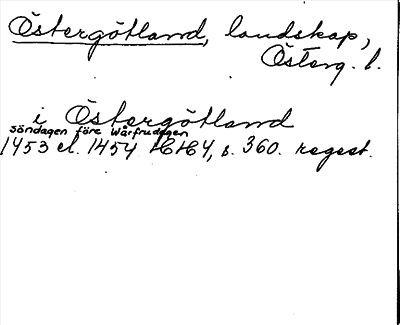 Östergötland, landskap,
Österg. l.
i Östergötland
söndagen före Wårfrudagen
1453 el. 1454 HH4, s. 360. regest.